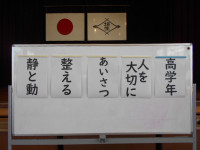 高学年
人を
大切に
あいさつ
整える
静と動